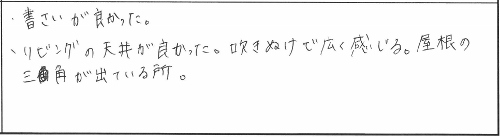 ・書さいが良かった。
・リビングの天井が良かった。吹きぬけで広く感じる。屋根の
三角が出ている所。